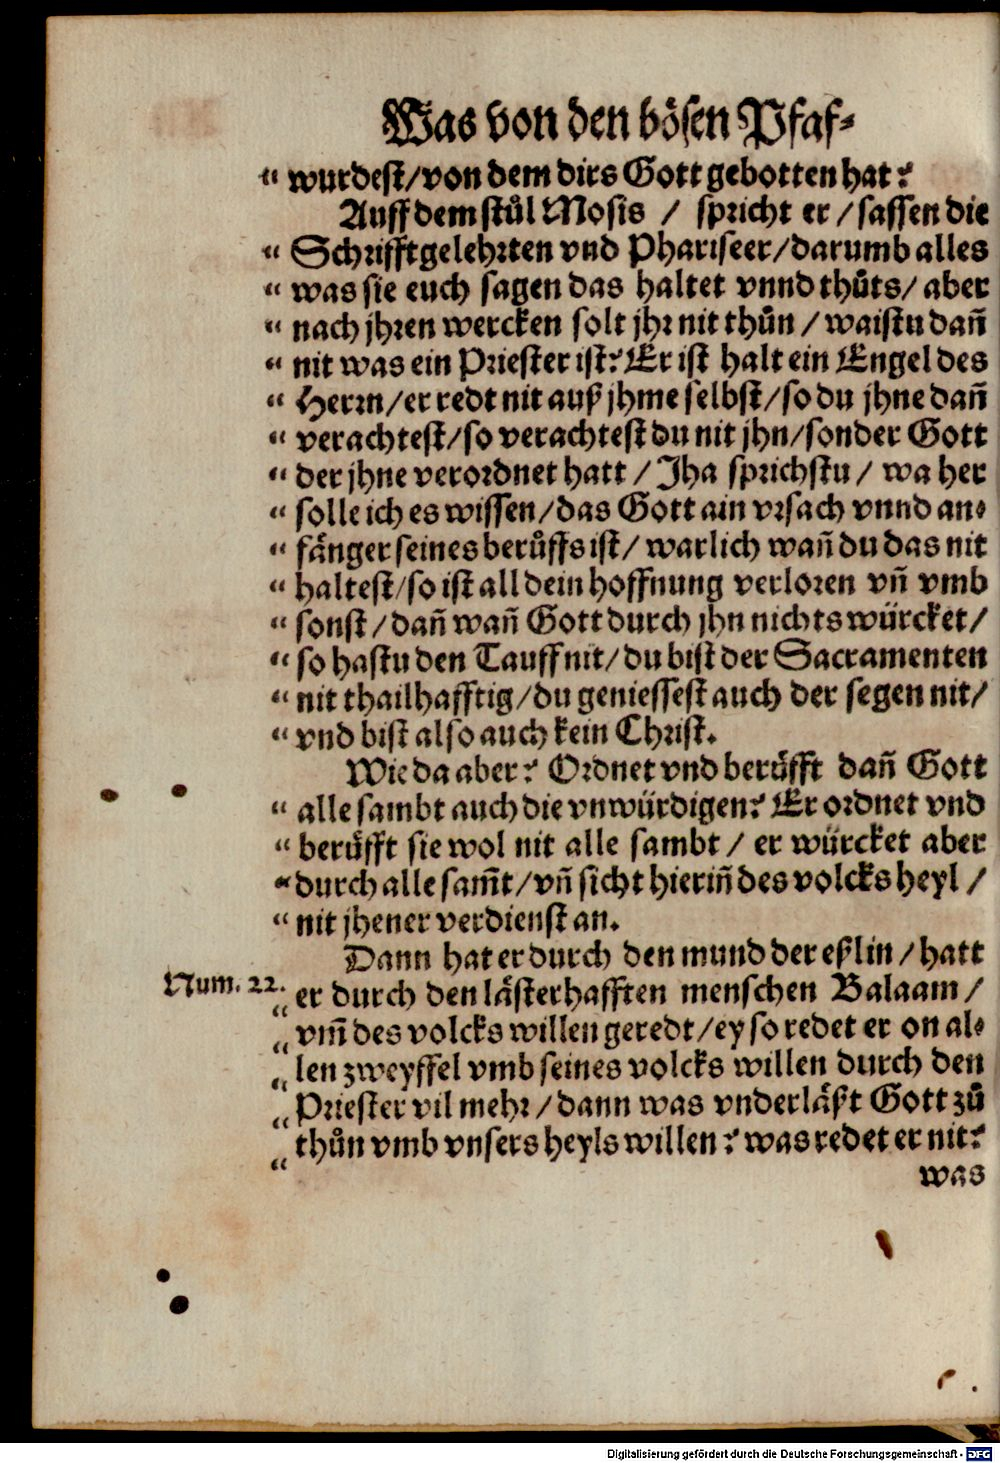 Was von den bösen Pfaf-
“ wurdest/von dem dirs Gott gebotten hat?
Auff dem stůl Mosis / spricht er / sassen die
“ Schrifftgelehrten vnd Phariseer/darumb alles
“ was sie euch sagen das haltet vnnd thůts/ aber
“ nach jhren wercken solt jhr nit thůn / waistu dañ
“ nit was ein Priester ist? Er ist halt ein Engel des
“ Herrn/er redt nit auß jhme selbst/so du jhne dañ
“ verachtest/so verachtest du nit jhn/sonder Gott
“ der jhne verordnet hatt / Jha sprichstu / wa her
“ solle ich es wissen/das Gott ain vrsach vnnd an-
“ fänger seines berůffs ist/ warlich wañ du das nit
“ haltest/so ist all dein hoffnung verloren vñ vmb
“ sonst/dañ wañ Gott durch jhn nichts würcket/
“ so hastu den Tauff nit/du bist der Sacramenten
“ nit thailhafftig/du geniessest auch der segen nit/
“ vnd bist also auch kein Christ.
Wie da aber? Ordnet vnd berůfft dañ Gott
“ alle sambt auch die vnwürdigen? Er ordnet vnd
“ berůfft sie wol nit alle sambt / er würcket aber
“ durch alle sam̃t/vñ sicht hieriñ des volcks heyl /
“ nit jhener verdienst an.
Dann hat er durch den mund der eßlin / hatt
Num. 22.
“ er durch den lästerhafften menschen Balaam /
“ vm̃ des volcks willen geredt/ey so redet er on al-
“ len zweyffel vmb seines volcks willen durch den
“ Priester vil mehr/dann was vnderläßt Gott zů
“ thůn vmb vnsers heyls willen? was redet er nit?
“
was
Digitalisierung gefördert durch die Deutsche Forschungsgemeinschaft - DFG